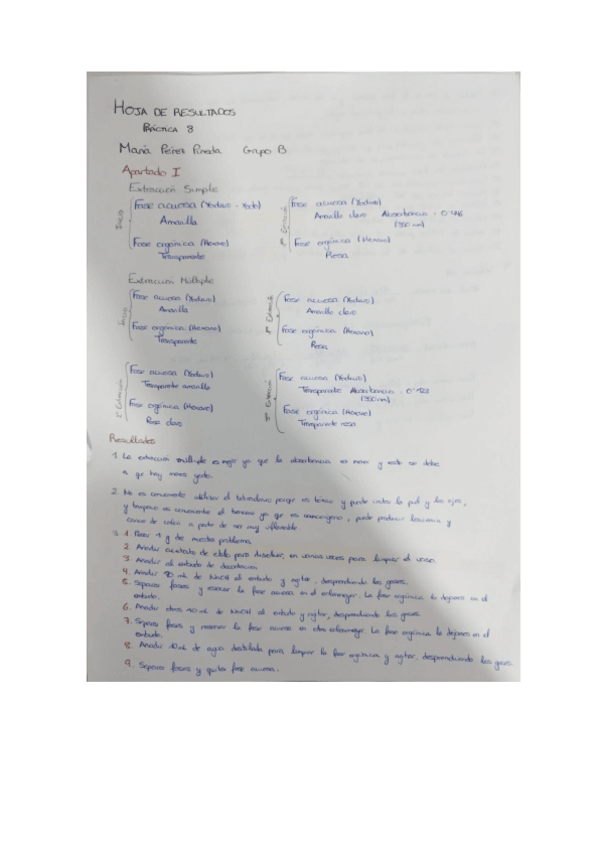 HOJA DE RESULTADOS
PRÁCTICA 8
María Pérez Pineda Grupo B
Apartado I
Extracción Simple
Inicio
Fase acuosa (Yoduro - Yodo)
Amarilla
Fase orgánica (Hexano)
Transparente
1ª Extracción
Fase acuosa (Yoduro)
Amarillo claro Absorbancia = 0'146
Fase orgánica (Hexano)
Rosa
Extracción Múltiple
Inicio
Fase acuosa (Yoduro)
Amarilla
Fase orgánica (Hexano)
Transparente
Extracción
Fase acuosa (Yoduro)
Amarillo claro
Fase orgánica (Hexano)
Rosa
2ª Extracción
Fase acuosa (Yoduro)
Transparente amarillo
Fase orgánica (Hexano)
Rosa claro
3ª Extracción
Fase acuosa (Yoduro)
Transparente Absorbancia = 0'123
Fase orgánica (Hexano)
Transparente rosa
Resultados
1. La extracción múltiple es mejor ya que la absorbancia es menor y esto se debe
a que hay menos yodo.
2. No es conveniente utilizar el porque es tóxico y puede la piel y los ojos,
y tampoco es conveniente el benceno ya que es cancerígeno, puede producir leucemia y
cáncer de a parte de ser muy inflamable.
3. 1. Pesar 1 g de muestra problema.
2. Añadir acetato de etilo para disolver, en varias veces para limpiar el vaso.
3. Añadir al embudo de decantación.
4. Añadir 10 mL de NaOH al embudo y agitar, desprendiendo los gases.
5. Separar fases y reservar la fase acuosa en el erlenmeyer. La fase orgánica la dejamos en el
embudo.
6. Añadir otros 10 mL de NaOH al embudo y agitar, desprendiendo los gases.
7. Separar fases y reservar la fase acuosa en otro erlenmeyer. La fase orgánica la dejamos en el
embudo.
8. Añadir 10 mL de agua destilada para limpiar la fase orgánica y agitar, desprendiendo los gases.
9. Separar fases y quitar fase acuosa.